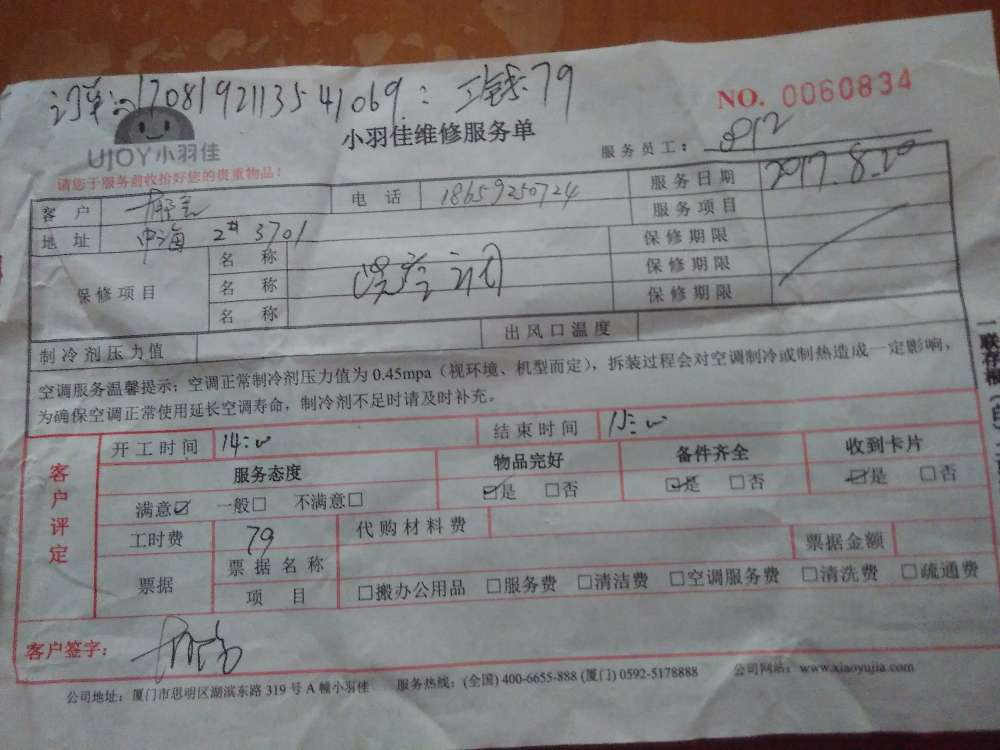 订单:17081921135541069: 工钱79
NO. 0060834
UJOY小羽佳
小羽佳维修服务单
服务员工: 0912
请您于服务前收拾好您的贵重物品!
客户 电话 18659250724 服务日期 2017.8.20
地址 中海 2# 3701 服务项目
保修项目 名称 保修期限
名称 保修期限
名称 保修期限
制冷剂压力值 出风口温度
空调服务温馨提示:空调正常制冷剂压力值为 0.45mpa(视环境、机型而定),拆装过程会对空调制冷或制热造成一定影响,
为确保空调正常使用延长空调寿命,制冷剂不足时请及时补充。
客户评定
开工时间 14:00 结束时间 15:00
服务态度 物品完好 备件齐全 收到卡片
满意☑ 一般□ 不满意□ ☑是 □否 ☑是 □否 ☑是 □否
工时费 79 代购材料费
票据 票据名称 票据金额
项目 □搬办公用品 □服务费 □清洁费 □空调服务费 □清洗费 □疏通费
客户签字:
公司地址:厦门市思明区湖滨东路 319 号 A 幢小羽佳 服务热线:(全国) 400-6655-888 (厦门) 0592-5178888 公司网站:www.xiaoyujia.com